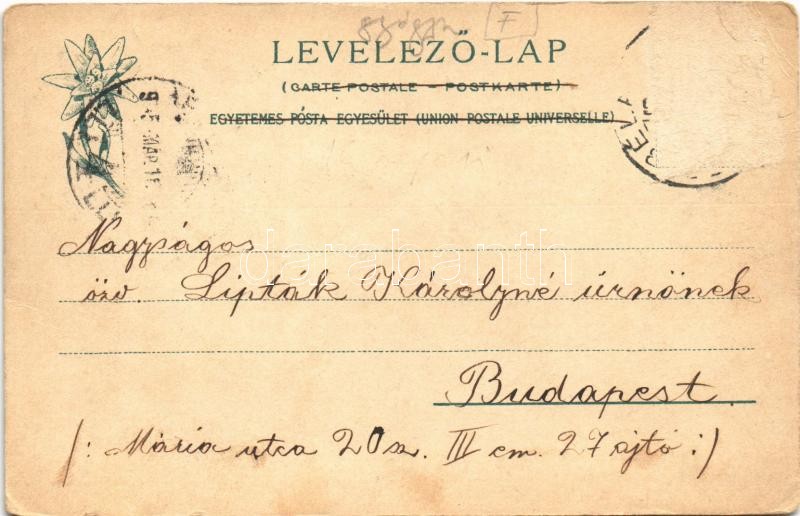 LEVELEZŐ-LAP
(CARTE POSTALE – POSTKARTE)
EGYETEMES PÓSTA EGYESÜLET (UNION POSTALE UNIVERSELLE)
BÉLA
Nagyságos
darabanth
özv. Lipták Károlyné úrnőnek
Budapest.
/: Mária utca 20 sz. III em. 27 ajtó :/